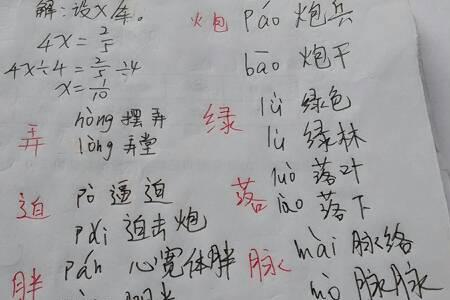 解:设X
4X=2/5
4X÷4=2/5÷4
X=1/10
弄 nòng 摆弄
lòng 弄堂
迫 pò 逼迫
pǎi 迫击炮
胖 pán 心宽体胖
炮 páo 炮兵
bāo 炮干
绿 lǜ 绿色
lù 绿林
落 luò 落叶
lào 落下
脉 mài 脉络
mò 脉脉